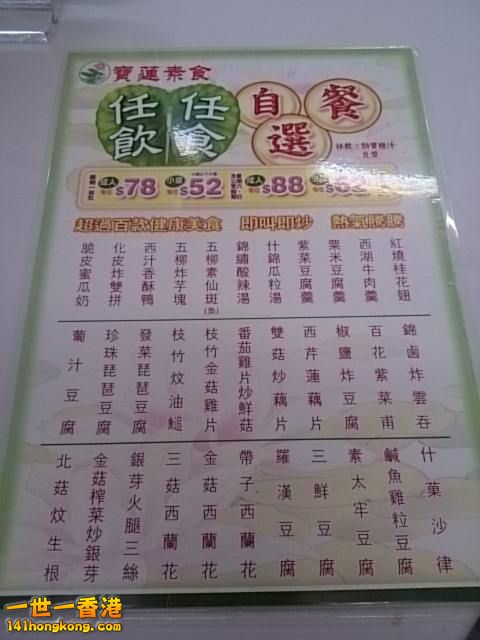 寶蓮素食
任飲
任食
自選餐
任飲：鮮寶橙汁
魚蛋
星期一至五
成人
每位
$78
小童
每位
$52
星期六、日
及公眾假期
成人
每位
$88
超過百款健康美食 即叫即炒 熱氣騰騰
紅燒桂花翅
西湖牛肉羹
粟米豆腐羹
紫菜豆腐羹
什錦瓜粒湯
錦繡酸辣湯
五柳素仙斑(魚)
五柳炸芋塊
西汁香酥鴨
化皮炸雙拼
脆皮蜜瓜奶
錦鹵炸雲吞
百花紫菜甫
椒鹽炸豆腐
西芹蓮藕片
雙菇炒藕片
番茄雞片炒鮮菇
枝竹金菇雞片
枝竹炆油䭔
發菜琵琶豆腐
珍珠琵琶豆腐
葡汁豆腐
什菓沙律
鹹魚雞粒豆腐
素太牢豆腐
三鮮豆腐
羅漢豆腐
帶子西蘭花
金菇西蘭花
三菇西蘭花
銀芽火腿三絲
金菇榨菜炒銀芽
北菇炆生根
一世一香港
141hongkong.com